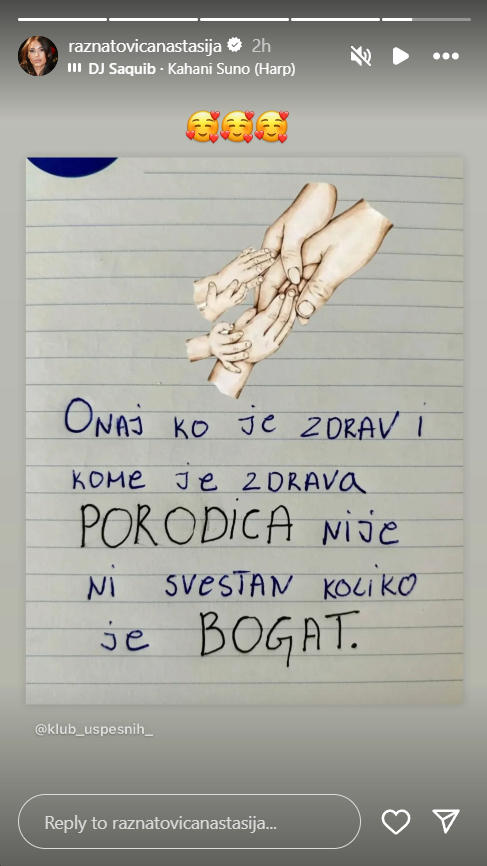 raznatovicanastasija 2h
DJ Saquib · Kahani Suno (Harp)
🥰🥰🥰
ONAJ KO je ZDRAV i
KOME je ZDRAVa
PORODiCA Nije
Ni SVESTAN KOLiKO
je BOGAT.
@klub_uspesnih_
Reply to raznatovicanastasija...